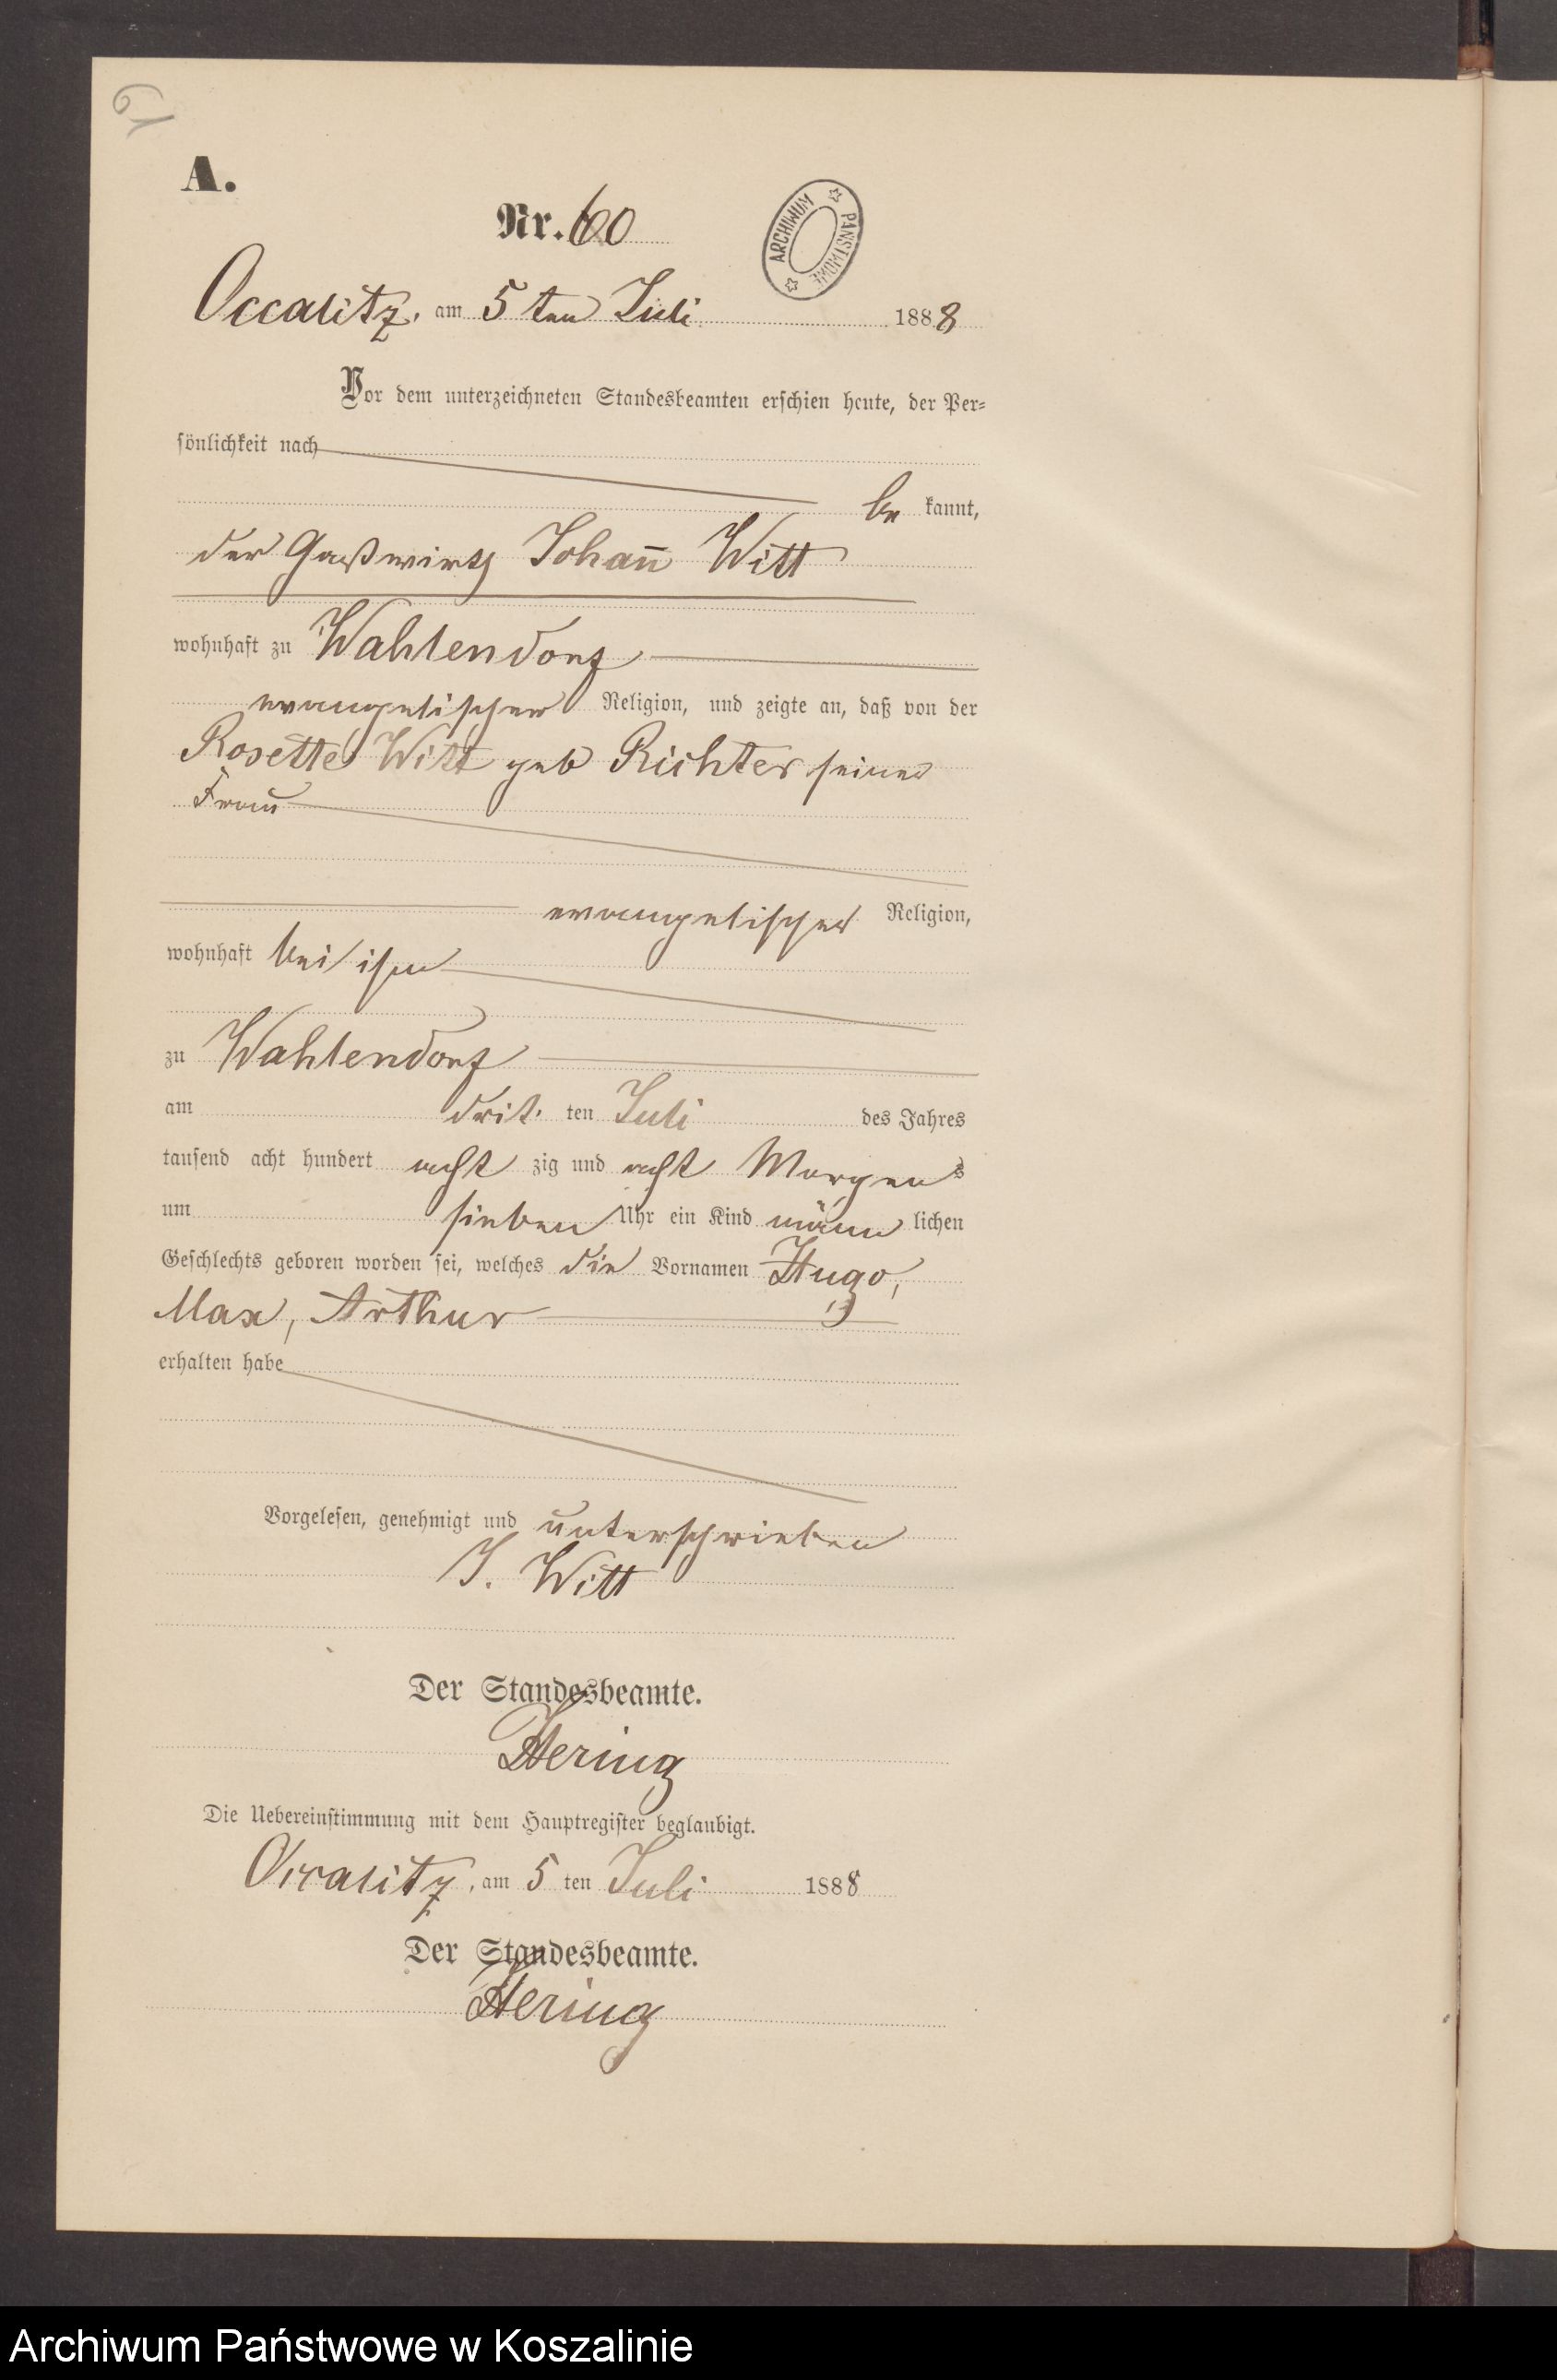 61
A.
Nr. 60
ARCHIWUM PAŃSTWOWE
Occalitz, am 5 ten Juli 1888
Vor dem unterzeichneten Standesbeamten erschien heute, der Per-
sönlichkeit nach
be kannt,
der Gastwirth Johan̄ Witt
wohnhaft zu Wahlendorf
evangelischer Religion, und zeigte an, daß von der
Rosette Witt geb Richter seiner
Frau
evangelischer Religion,
wohnhaft bei ihm
zu Wahlendorf
am drit. ten Juli des Jahres
tausend acht hundert acht zig und acht Morgens
um sieben Uhr ein Kind männ lichen
Geschlechts geboren worden sei, welches die Vornamen Hugo,
Max, Arthur
erhalten habe
Vorgelesen, genehmigt und unterschrieben
J. Witt
Der Standesbeamte.
Hering
Die Uebereinstimmung mit dem Hauptregister beglaubigt.
Occalitz, am 5 ten Juli 1888
Der Standesbeamte.
Hering
Archiwum Państwowe w Koszalinie